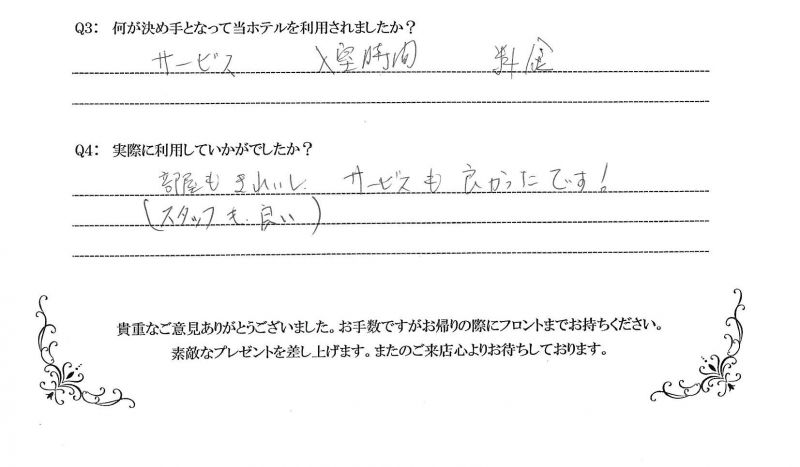 Q3: 何が決め手となって当ホテルを利用されましたか？
サービス 入室時間 料金
Q4: 実際に利用していかがでしたか？
部屋もきれいし、サービスも良かったです!
(スタッフも良い)
貴重なご意見ありがとうございました。お手数ですがお帰りの際にフロントまでお持ちください。
素敵なプレゼントを差し上げます。またのご来店心よりお待ちしております。